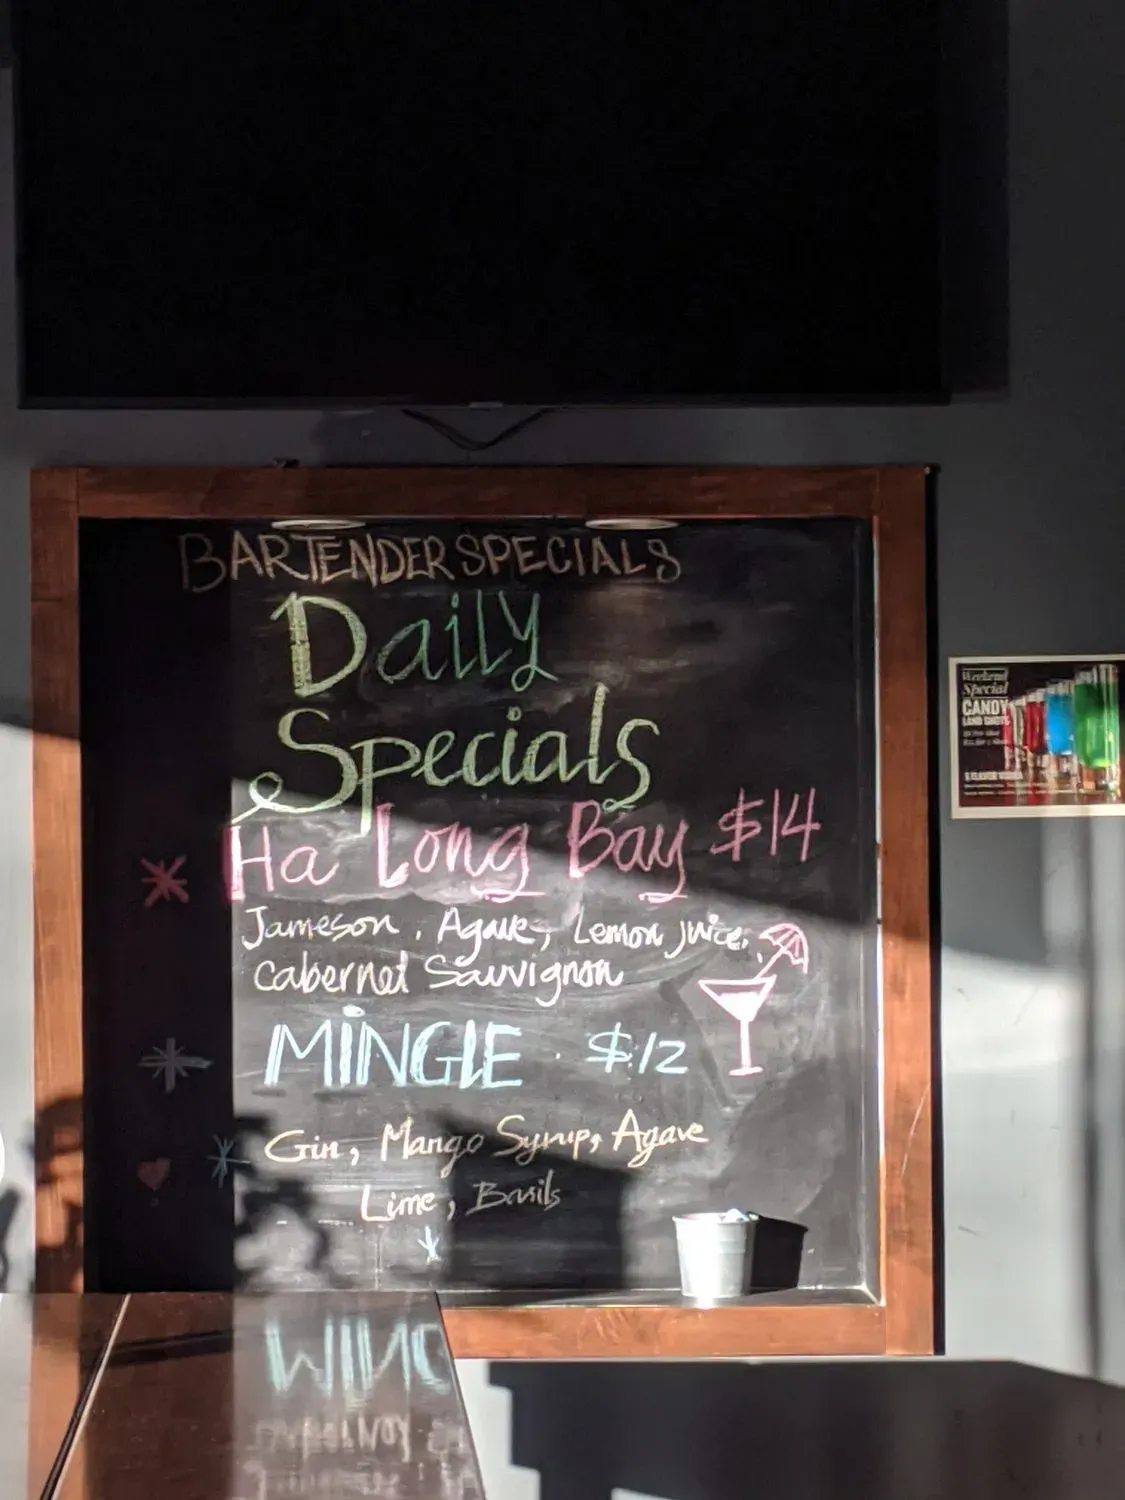 BARTENDER SPECIALS
Daily
Specials
Ha Long Bay $14
Jameson, Agave, Lemon juice,
Cabernet Sauvignon
MINGLE $12
Gin, Mango Syrup, Agave
Lime, Basils
Weekend
Special
CANDY
LAND SHOTS